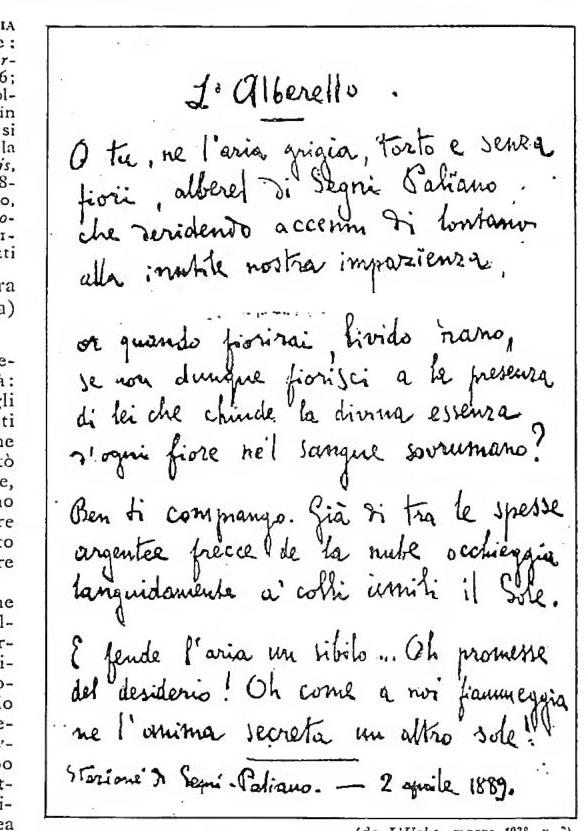 L'Alberello.
O tu, ne l'aria grigia, torto e senza
fiori, alberel di Segni Paliano
che deridendo accenni di lontano
alla inutile nostra impazienza,
or quando fiorirai, livido nano,
se non dunque fiorisci a la presenza
di lei che chiude la divina essenza
d'ogni fiore ne'l sangue sovrumano?
Ben ti compiango. Già di tra le spesse
argentee frecce de la nube occhieggia
languidamente a' colli umili il Sole.
E fende l'aria un sibilo... Oh promesse
del desiderio! Oh come a noi fiammeggia
ne l'anima secreta un altro sole!
Stazione di Segni-Paliano. — 2 aprile 1889.